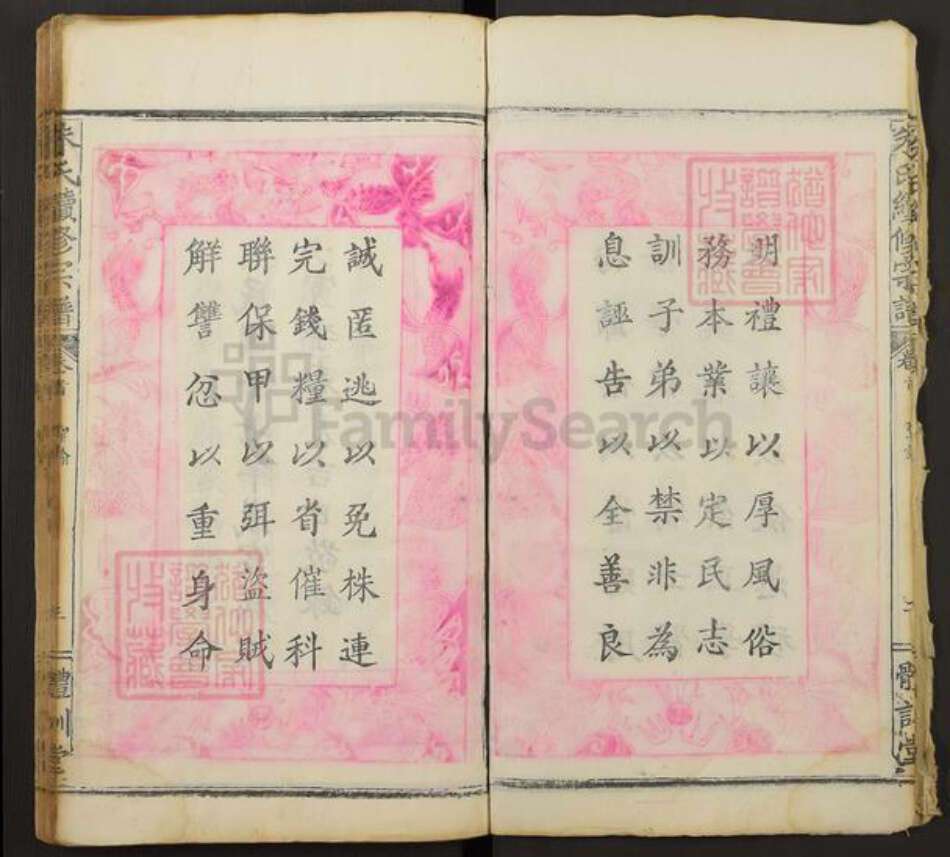 明禮讓以厚風俗
務本業以定民志
訓子弟以禁非為
息誣告以全善良
誠匿逃以免株連
完錢糧以省催科
聯保甲以弭盜賊
解讐忿以重身命
朱氏續修宗譜
卷首
聖諭
禮訓堂
FamilySearch